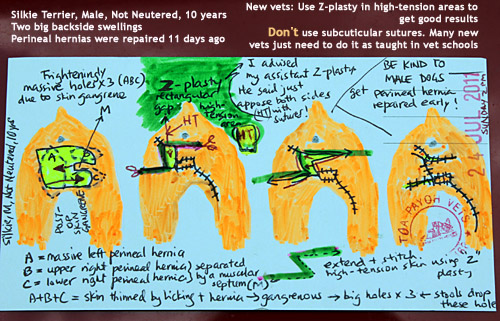 Silkie Terrier, Male, Not Neutered, 10 years
Two big backside swellings
Perineal hernias were repaired 11 days ago
New vets: Use Z-plasty in high-tension areas to
get good results
Don't use subcuticular sutures. Many new
vets just need to do it as taught in vet schools
Frighteningly
massive holes x 3 (ABC)
due to skin gangrene
M
Z-plasty
rectangular
gaps high-
tension
area
HT
I advised
my assistant Z-plasty
He said just
appose both sides
(HT) with
suture!
HT
BE KIND TO
MALE DOGS
get perineal hernia
repaired early!
24 JUL 2011
SUNDAY
A
B
C
Silkie, M, Not Neutered, 10 yrs
POST-
OP
SKIN
GANGRENE
TOA PAYOH VETS
A = massive left perineal hernia
B = upper right perineal hernia) separated
C = lower right perineal hernia) by a muscular
septum (M)
extend + stitch
high-tension skin using "Z"
plasty
A+B+C = skin thinned by licking + hernia → gangrenous → big holes x 3 ← stools drop
these hole